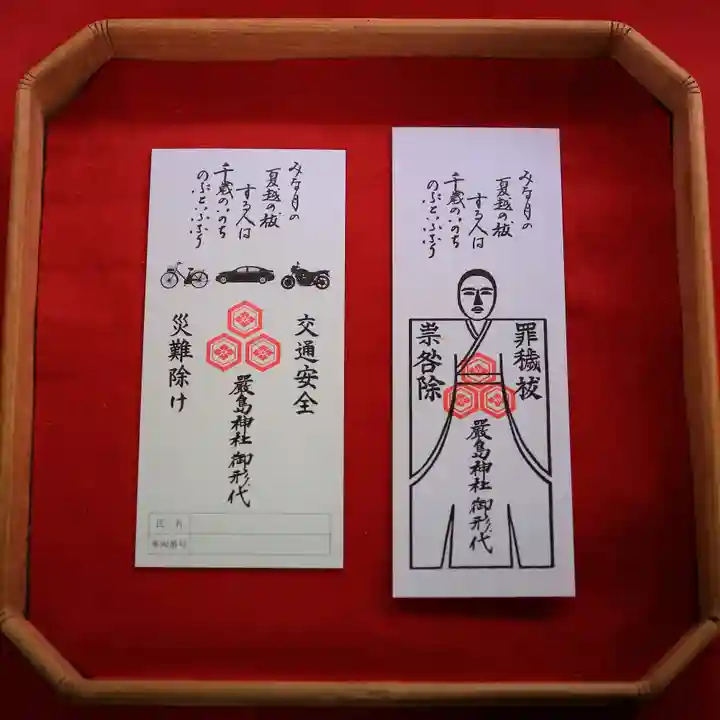 みな月の
夏越の祓
する人は
千歳のいのち
のぶといふなり
交通安全
災難除け
嚴島神社 御形代
氏名
車両番号
みな月の
夏越の祓
する人は
千歳のいのち
のぶといふなり
罪穢祓
祟咎除
嚴島神社 御形代